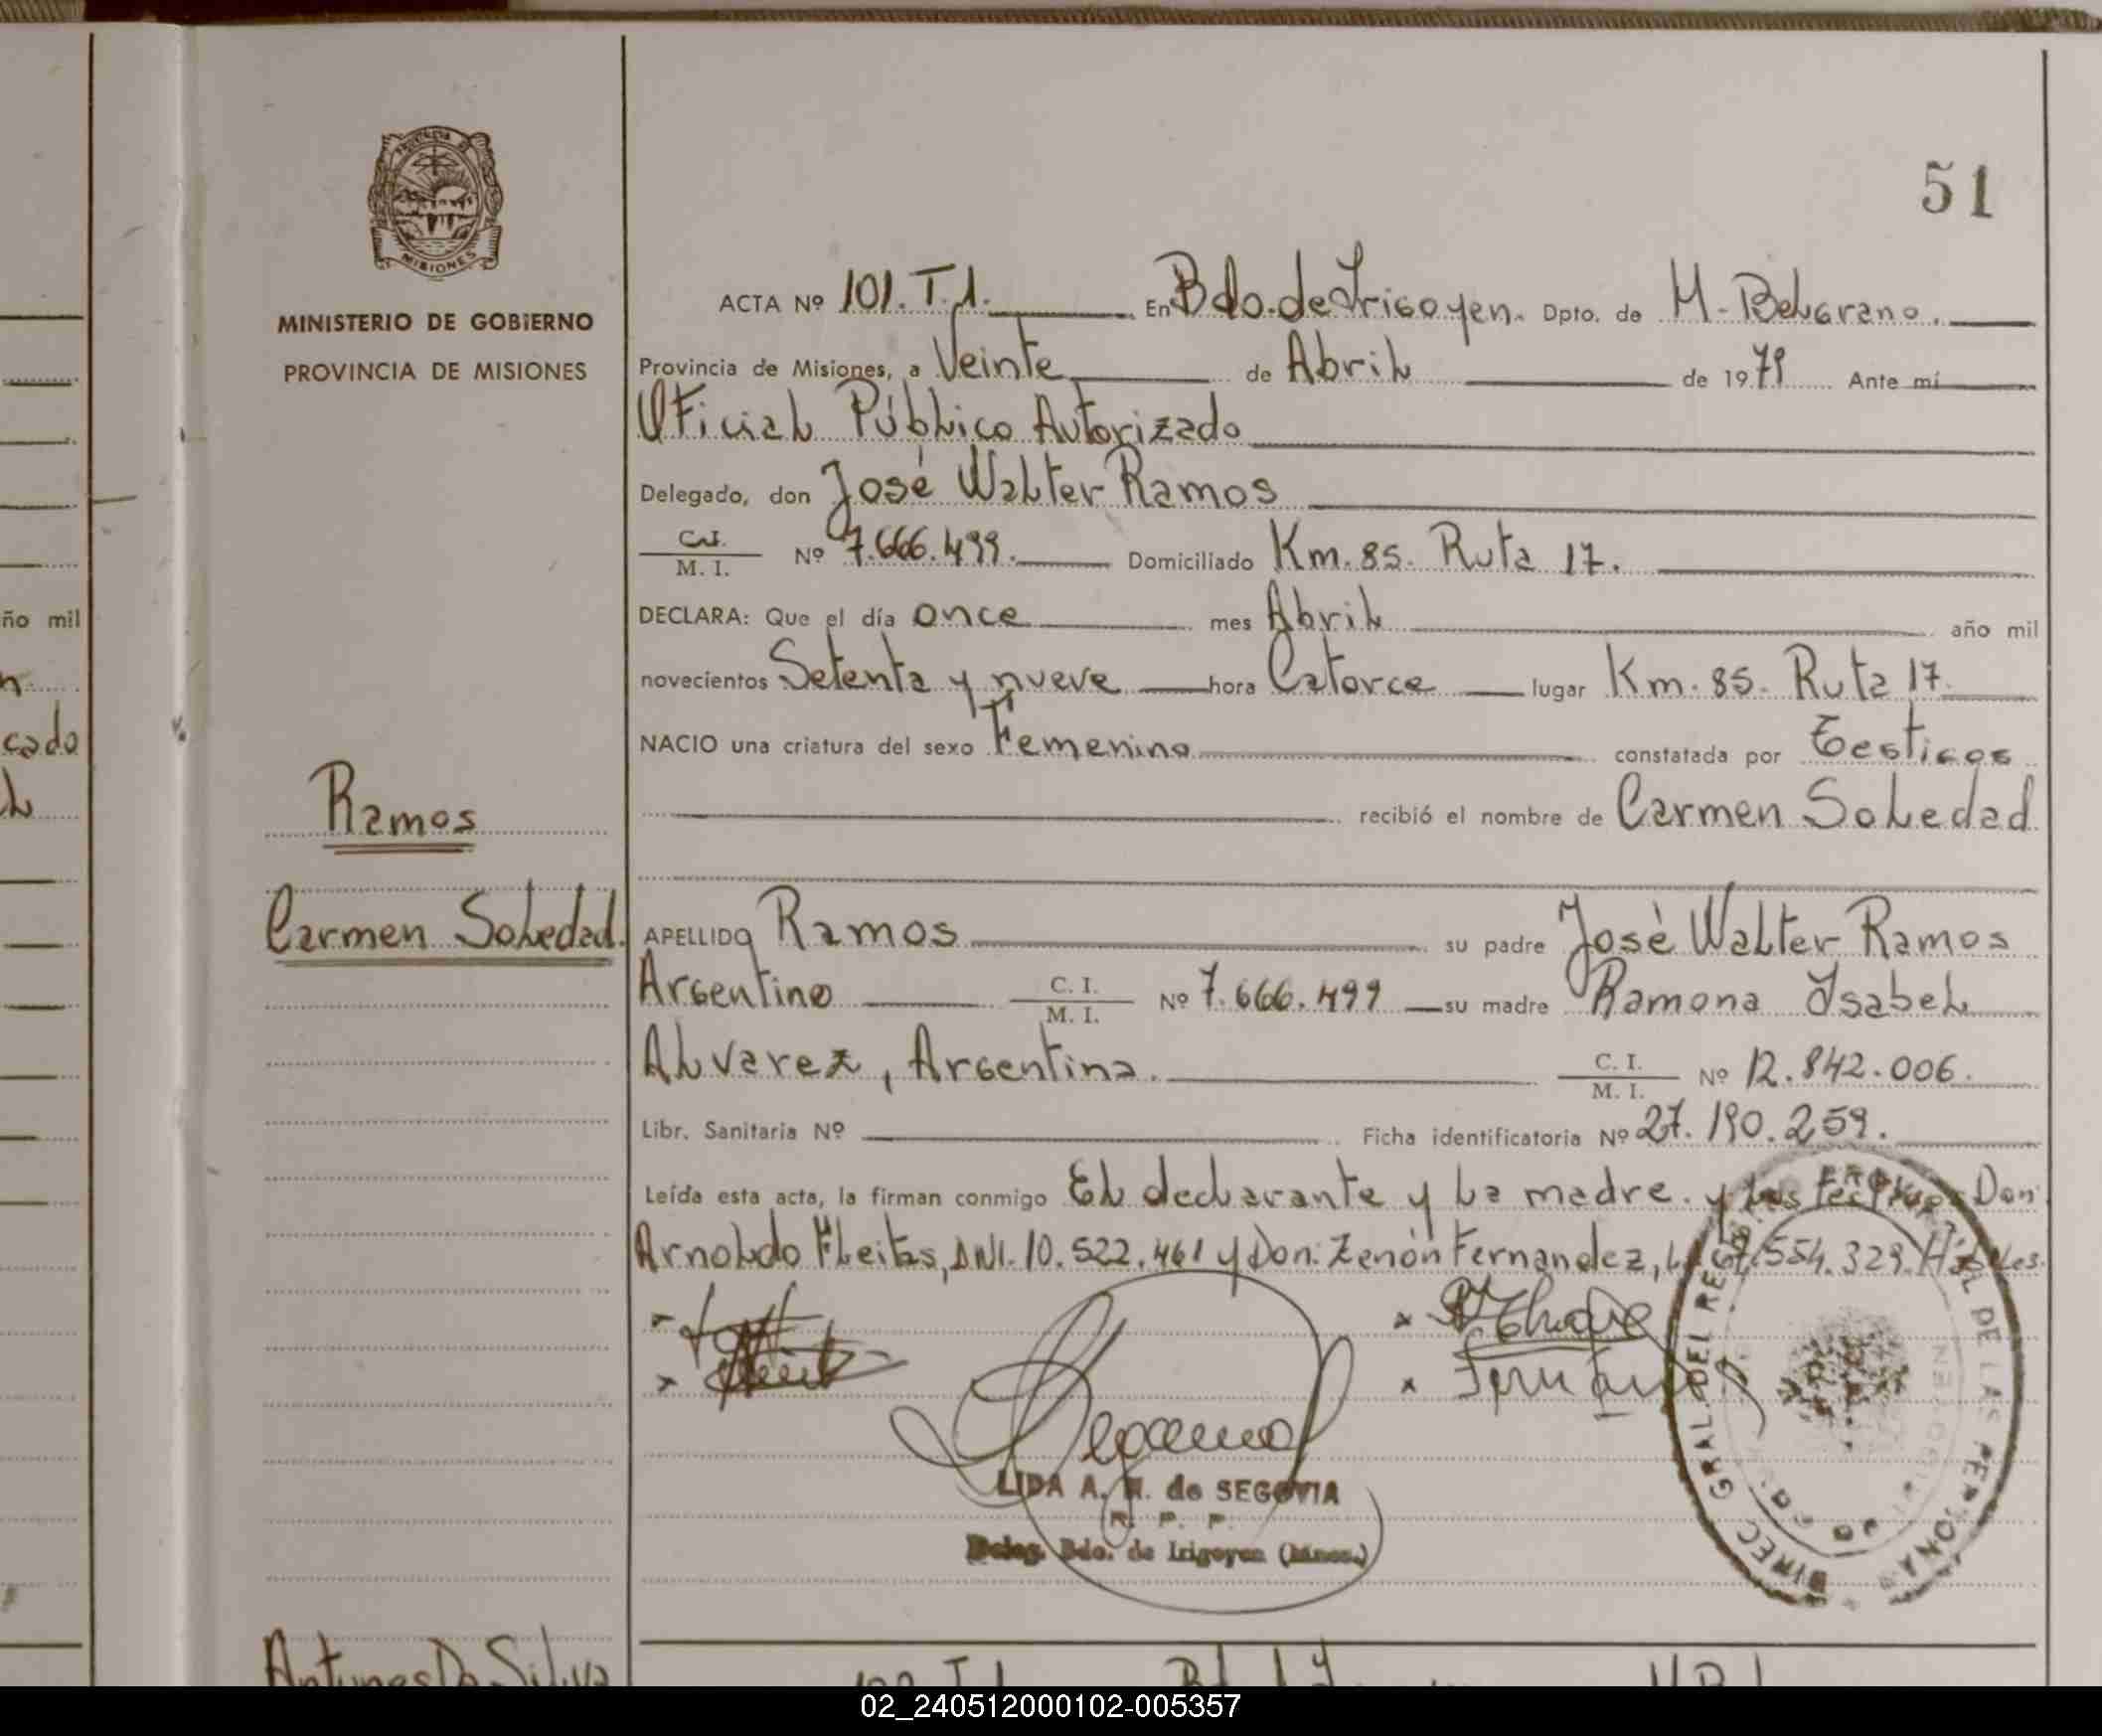 PROVINCIA
MISIONES
MINISTERIO DE GOBIERNO
PROVINCIA DE MISIONES
ño mil
n
cado
Ramos
Carmen Soledad.
51
ACTA Nº 101.T.1. En Bdo.de Irigoyen. Dpto. de M. Belgrano.
Provincia de Misiones, a Veinte de Abril de 1979 Ante mí
Oficial Público Autorizado
Delegado, don José Walter Ramos
C.I. M. I. Nº 7.666.499. Domiciliado Km. 85. Ruta 17.
DECLARA: Que el día once mes Abril año mil
novecientos Setenta y nueve hora Catorce lugar Km. 85. Ruta 17.
NACIO una criatura del sexo Femenino constatada por Testigos
recibió el nombre de Carmen Soledad
APELLIDO Ramos su padre José Walter Ramos
Argentino C. I. M. I. Nº 7.666.499 su madre Ramona Ysabel
Alvarez, Argentina. C. I. M. I. Nº 12.842.006.
Libr. Sanitaria Nº Ficha identificatoria Nº 27.190.259.
Leída esta acta, la firman conmigo El declarante y la madre. y los testigos Don
Arnoldo Fleitas, DNI. 10.522.461 y Don: Zenón Fernandez, 554.329. Hábiles.
LIDA A. H. de SEGOVIA
R. P. P.
Deleg. Bdo. de Irigoyen (Mnes.)
DIREC GRAL. DEL REG. PROVINCIAL DE LAS PERSONAS
Antunes Da Silva
02_240512000102-005357